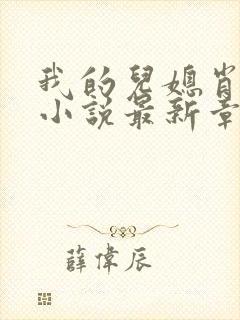 我的兒媳肖
小說最新章
薛偉辰